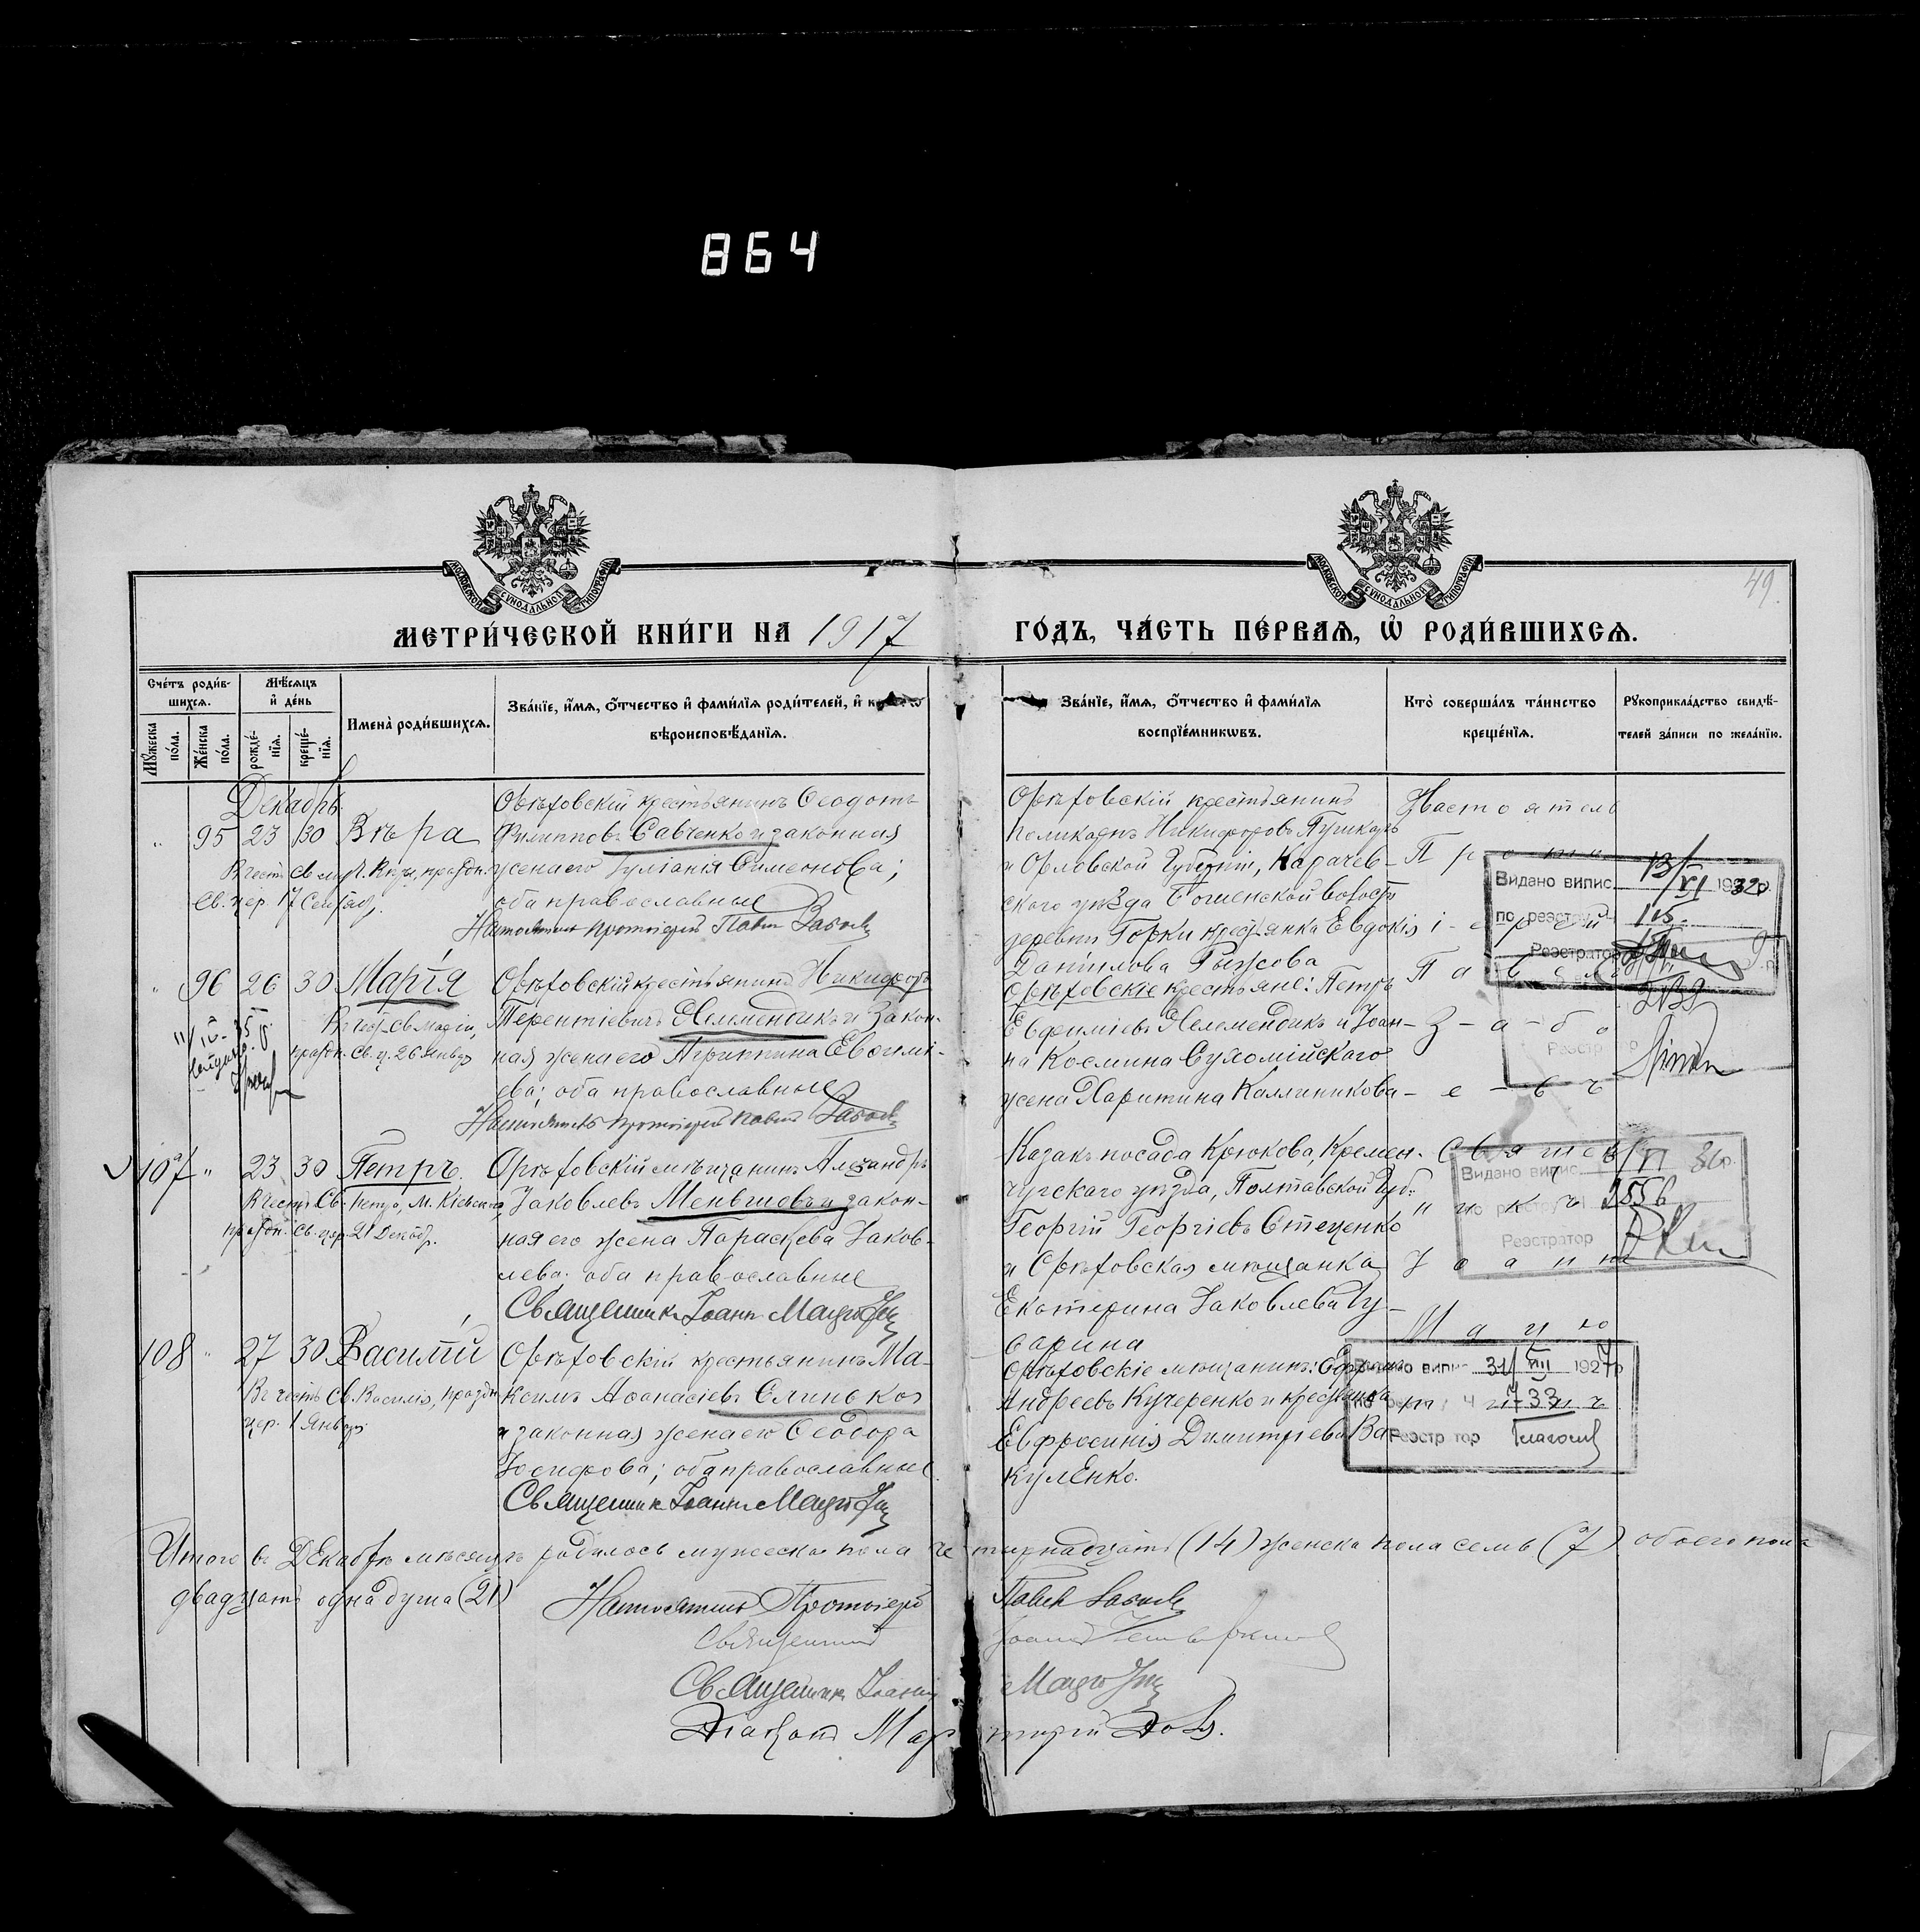 864
МОСКОВСКОЙ СѴНОДАЛЬНОЙ ТИПОГРАФІИ
МОСКОВСКОЙ СѴНОДАЛЬНОЙ ТИПОГРАФІИ
49
МЕТРИ́ЧЕСКОЙ КНИ́ГИ НА 1917
ГО́ДЪ, ЧА́СТЬ ПЕ́РВАѦ, Ѡ҆ РОДИ́ВШИХСѦ.
Сче́тъ роди́в-
шихсѧ.
Мѣ́сѧцъ
и҆ де́нь
Мꙋ́жеска по́ла.
Же́нска по́ла.
рожде́-
нїѧ.
креще́-
нїѧ.
Имена̀ роди́вшихсѧ.
Зва́нїе, и҆́мѧ, ѻ҆́тчество и҆ фами́лїѧ роди́телей, и҆
вѣроисповѣ́данїѧ.
Зва́нїе, и҆́мѧ, ѻ҆́тчество и҆ фами́лїѧ
воспрїе́мникѡвъ.
Кто̀ соверша́лъ та́инство
креще́нїѧ.
Рꙋкоприкла́дство свидѣ́-
телей за́писи по жела́нїю.
Декабрь
95 23 30 Вѣра
Св. цер. 17 Сентяб.
Орѣховскій крестьянинъ Ѳеодотъ
Филипповъ Савченко и законная
жена его Іуліанія Симеонова;
оба православные
Настоятель протоіерей Павелъ
Орѣховскій крестьянинъ
Поликарпъ Никифоровъ Пушкарь
и Орловской Губерніи, Карачев-
ского уѣзда
деревни Горки крестьянка Евдокія
Данилова Рыжова
Настоятель
Прото-
і-ерей
Павелъ
Видано випис. 13/VI 1932 р.
по реэстру 115
Реэстратор
96 26 30 Марія
празд. Св. ц. 26 Январ
Орѣховскій крестьянинъ Никифоръ
Терентіевичъ и закон-
ная жена его Агриппина Евѳимі-
ева; оба православные
Настоятель протоіерей Павелъ
Орѣховскіе крестьяне: Петръ
Евфиміевъ и Іоан-
на Космина Сухомлійскаго
жена Харитина Каллиникова
Реэстр
107 23 30 Петръ
Въ честь Св. Петра, М. Кіевскаго,
праздн. Св. цер. 21 Декабр.
Орѣховскій мѣщанинъ Александръ
Іаковлевъ Меньшовъ и закон-
ная его жена Параскева Іаков-
лева; оба православные
Священникъ Іоаннъ
Казакъ посада Крюкова, Кремен-
чугскаго уѣзда, Полтавской Губ.
Георгій Георгіевъ Стеценко
и Орѣховская мѣщанка
Екатерина Іаковлева Гу-
барина
Священ
никъ
Іоаннъ
Видано випис
по реэстру 2556
Реэстратор
108 27 30 Василій
Въ честь Св. Василія, праздн
цер. 1 Январ.
Орѣховскій крестьянинъ Ма-
ксимъ Аѳанасіевъ Слинько
и законная жена его Ѳеодора
Іосифова; оба православные.
Священникъ Іоаннъ
Орѣховскіе мѣщанинъ:
Андреевъ Кучеренко и крестьянка
Евфросинія Димитріева Ва-
куленко.
Видано випис 31/VIII 1927 р
733
Реэстр тор
Итого въ Декабрѣ мѣсяцѣ родилось мужеска пола четырнадцать (14) женска пола семь (7) обоего пола
двадцать одна душа (21)
Настоятель Протоіерей Павелъ
Священникъ Іоаннъ
Священникъ Іоаннъ
Діаконъ